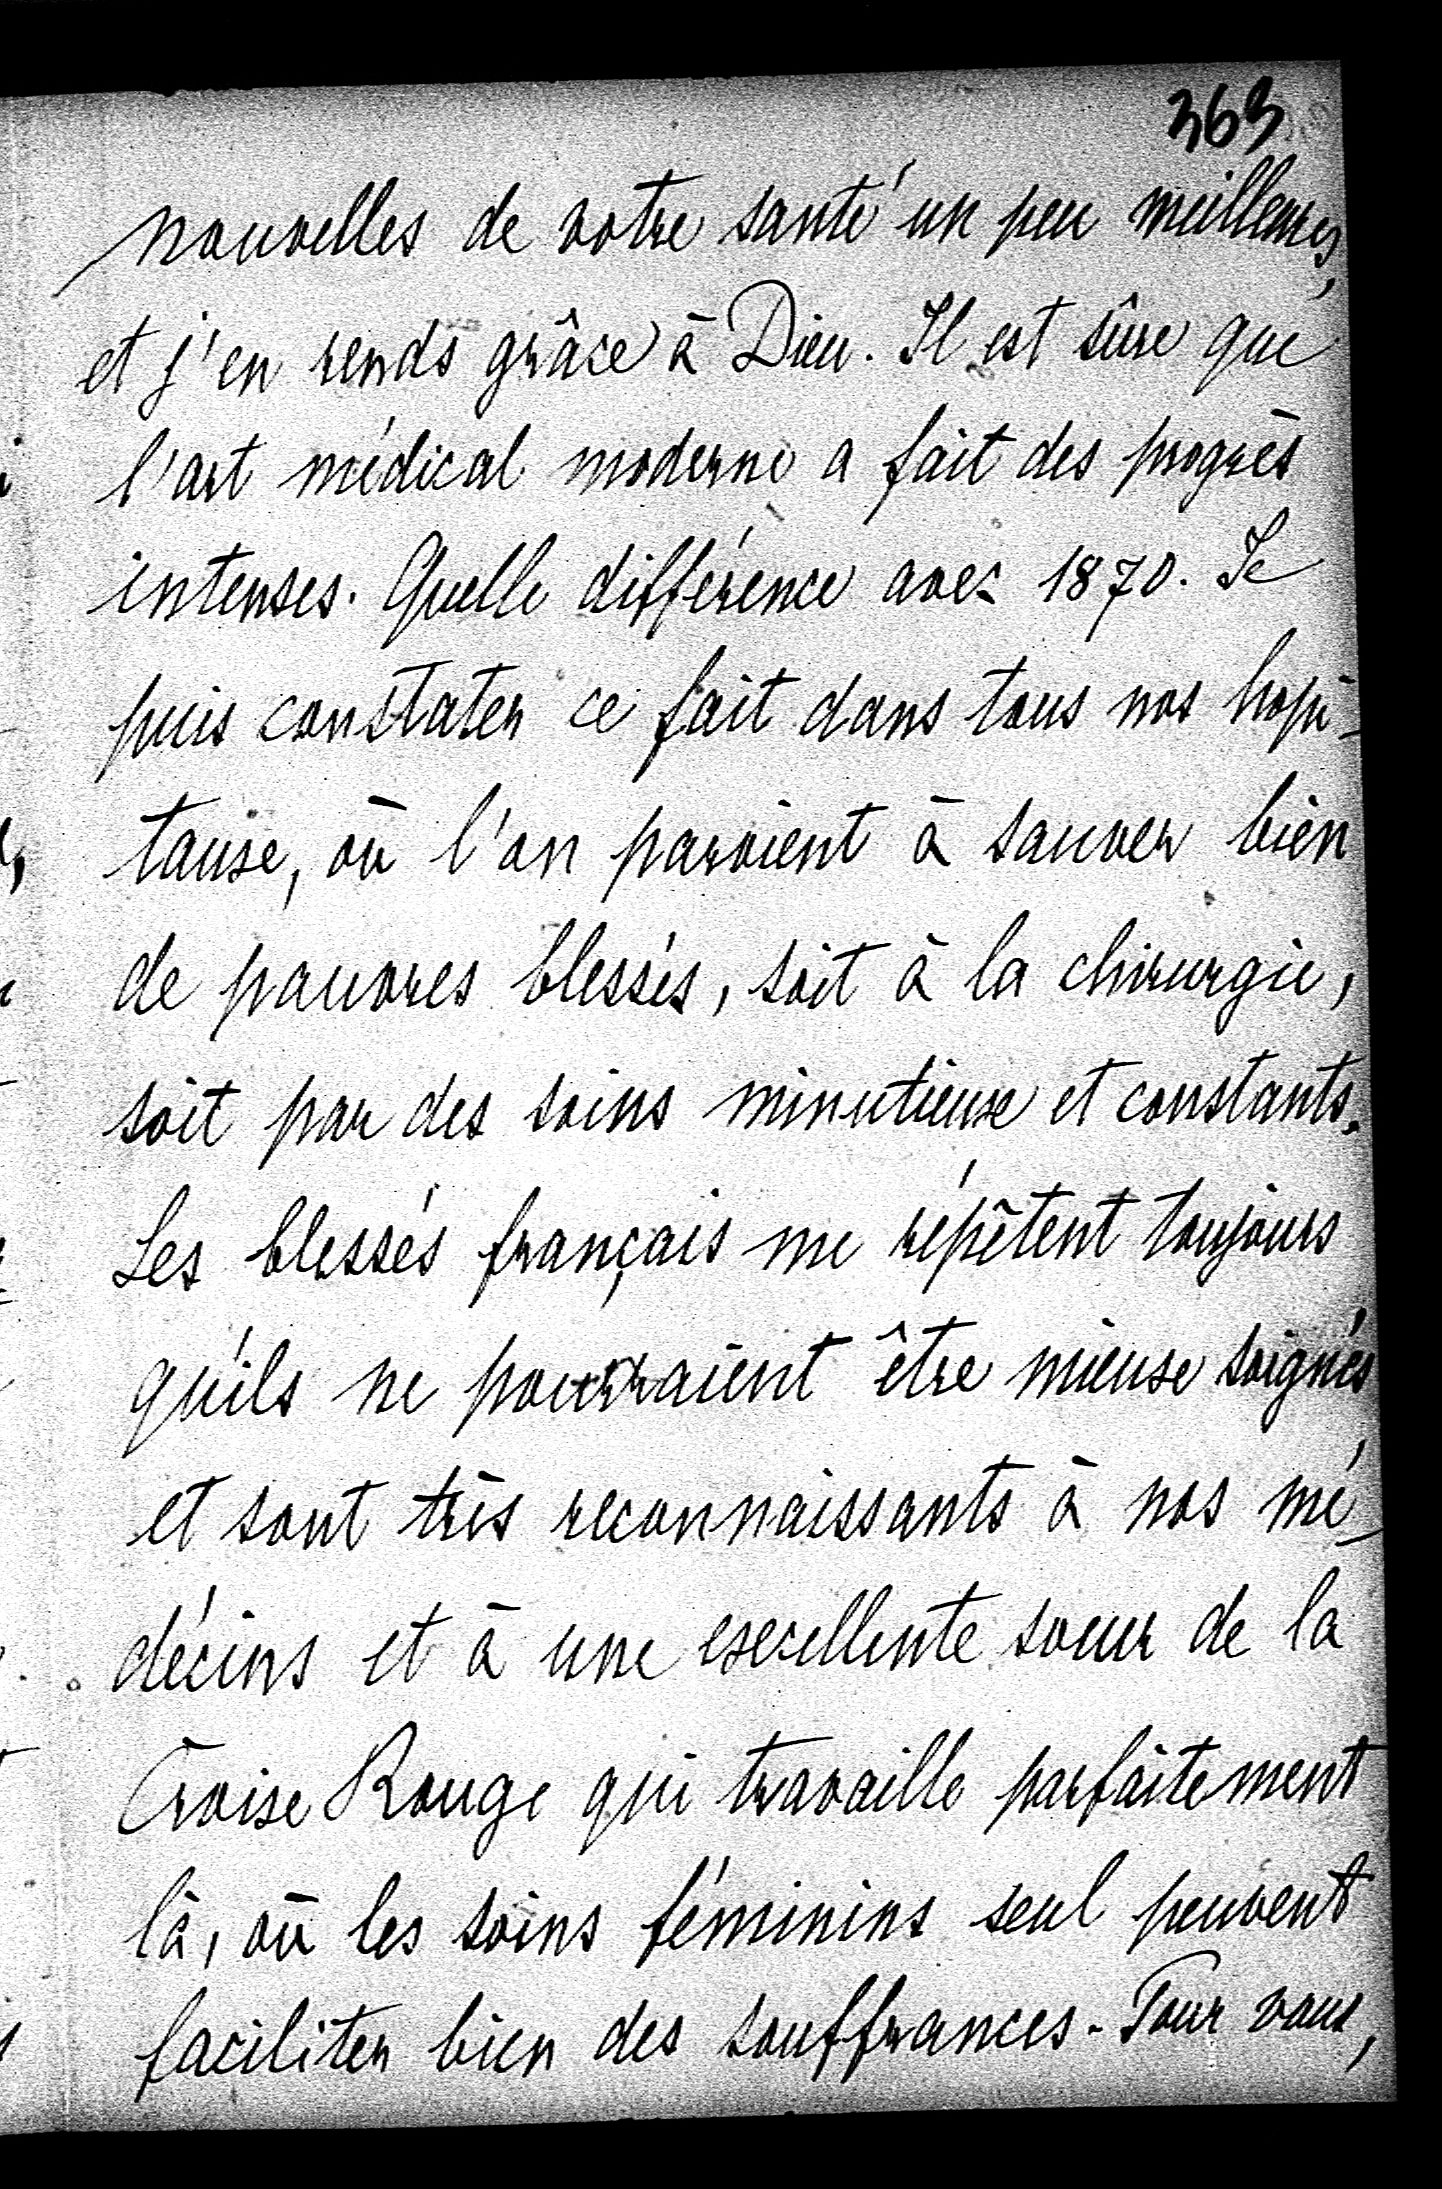 363
nouvelles de votre santé un peu meilleures,
et j'en rends grâce à Dieu. Il est sûre que
l'art médical moderne a fait des progrès
intenses. Quelle différence avec 1870. Je
puis constater ce fait dans tous nos hopi-
taux, où l'on parvient à sauver bien
de pauvres blessés, soit à la chirurgie,
soit par des soins minutieux et constants.
Les blessés français me répêtent toujours
qu'ils ne pourraient être mieux soignés
et sont très reconnaissants à nos mé-
décins et à une excellente soeur de la
Croix Rouge qui travaille parfaitement
là, où les soins féminins seul peuvent
faciliter bien des souffrances. Pour vous,